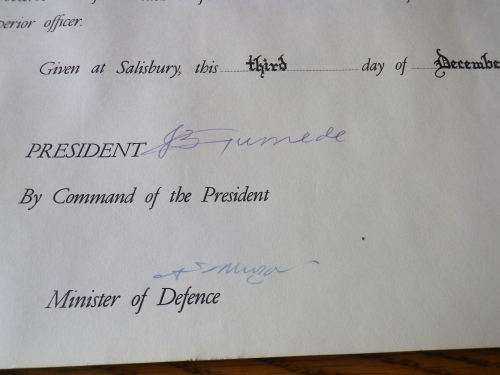 perior officer.
Given at Salisbury, this third day of Decembe
PRESIDENT Gumede
By Command of the President
Minister of Defence